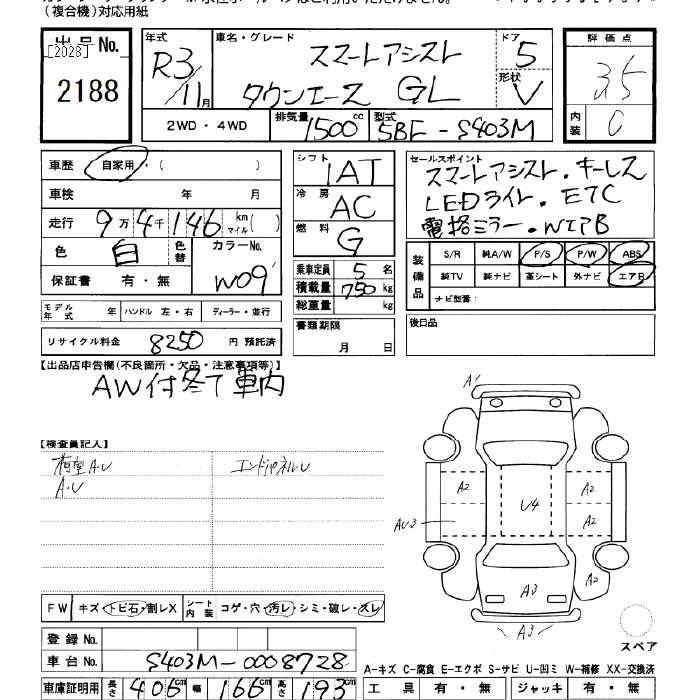 (複合機)対応用紙
出品No.
[2028]
2188
年式
R3/11月
車名・グレード
スマートアシスト
タウンエース GL
ドア
5
形状
V
2WD・4WD
排気量 1500 cc
型式 5BF-S403M
評価点
3.5
内装 C
車歴 自家用・( )
車検 年 月
走行 9万4千146 km マイル( )
色 白 色替 カラーNo. W09
保証書 有・無
モデル年式 年 ハンドル 左・右 ディーラー・並行
リサイクル料金 8250 円 預託済
シフト IAT
冷房 AC
燃料 G
乗車定員 5 名
積載量 750 kg
総重量 kg
書類期限 月 日
セールスポイント
スマートアシスト・キーレス
LEDライト・ETC
電格ミラー・WエアB
装備品
S/R 純A/W P/S P/W ABS
純TV 純ナビ 革シート 外ナビ エアB
ナビ型番:
後日品
【出品店申告欄(不良箇所・欠品・注意事項等)】
AW付冬T車内
【検査員記入】
荷室A・U エンドパネルU
A・U
A1
A2
A2
U4
AU3
A2
A2
A3
A3
スペア
FW キズ・トビ石・割レX シート内装 コゲ・穴・汚レ・シミ・破レ・スレ
登録No.
車台No. S403M-0008728
車庫証明用 長さ 406cm 幅 166cm 高さ 193cm
A-キズ C-腐食 E-エクボ S-サビ U-凹ミ W-補修 XX-交換済
工具 有・無 ジャッキ 有・無